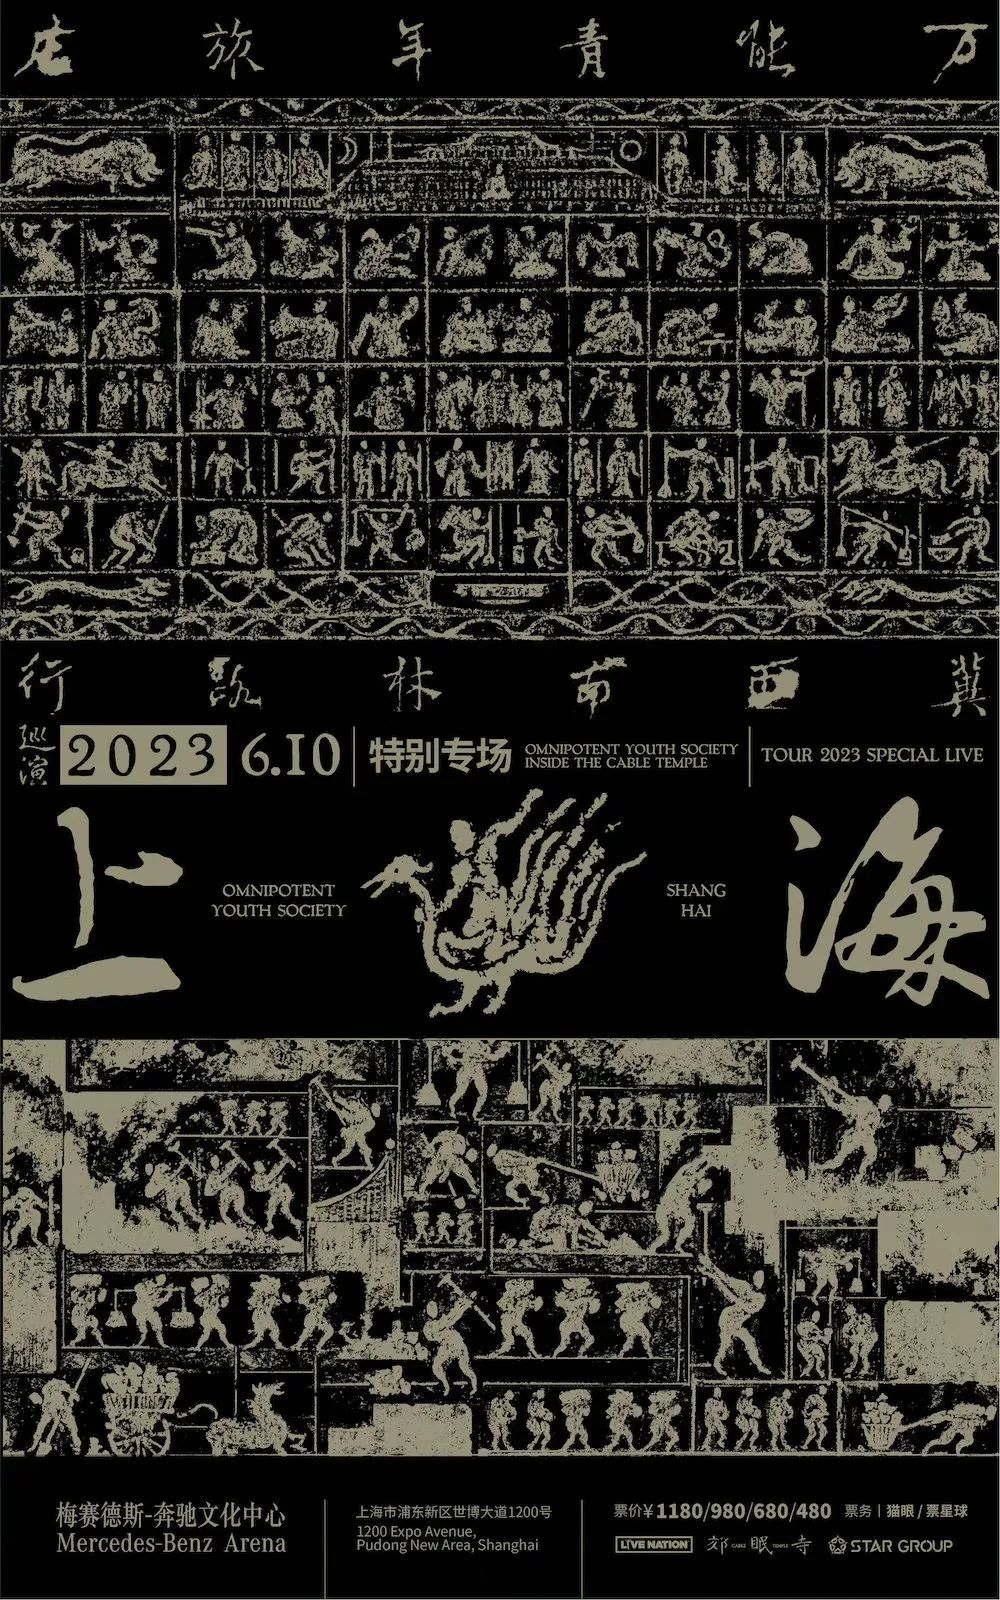 万能青年旅店
冀西南林路行
巡演
2023 6.10
特别专场
OMNIPOTENT YOUTH SOCIETY
INSIDE THE CABLE TEMPLE
TOUR 2023 SPECIAL LIVE
上海
OMNIPOTENT
YOUTH SOCIETY
SHANG
HAI
梅赛德斯-奔驰文化中心
Mercedes-Benz Arena
上海市浦东新区世博大道1200号
1200 Expo Avenue,
Pudong New Area, Shanghai
票价¥1180/980/680/480 票务|猫眼/票星球
LIVE NATION 郊 CABLE 眠 TEMPLE 寺 STAR GROUP